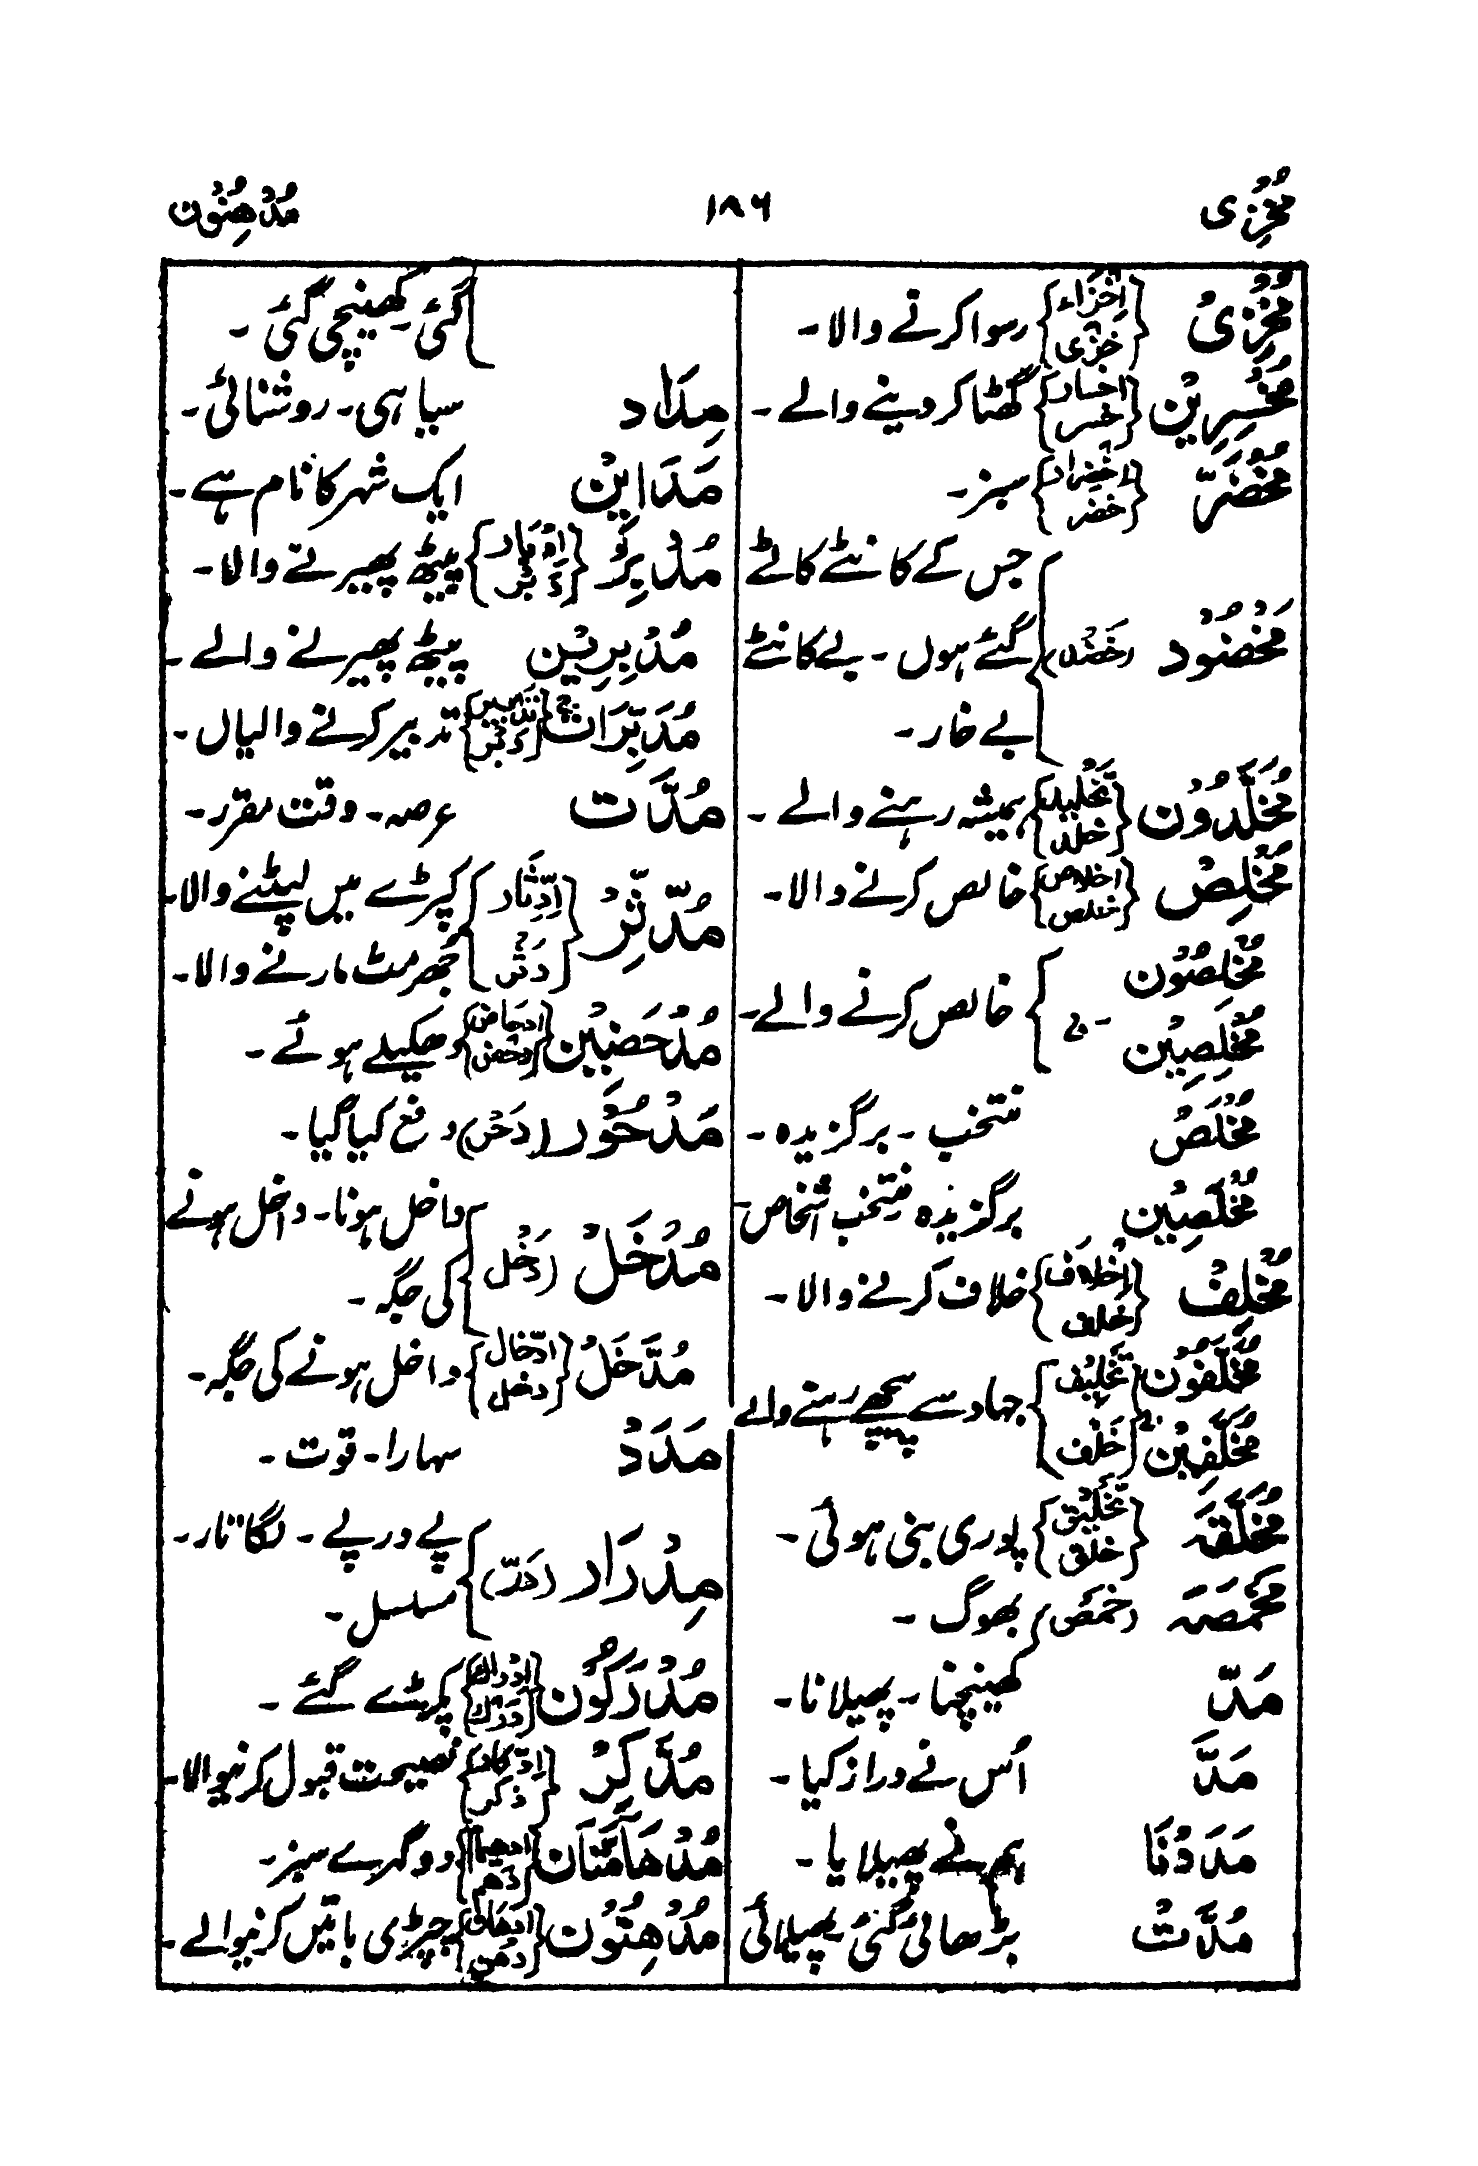 مُخْزِی ۱۸۶ مُدْهِنُوْن
مُخْزِیْ {اِخْزَاء خزْی} رسوا کرنے والا۔
مُخْسِرِیْن {اخسار خسر} گھٹا کر دینے والے۔
مُخْضَرّ {اِخْضِرَار خضر} سبز۔
جس کے کانٹے کاٹے
مَخْضُوْد (خَضْد) گئے ہوں۔ بے کانٹے
بے خار۔
مُخَلَّدُوْن {تَخْلِیْد خلد} ہمیشہ رہنے والے۔
مُخْلِصْ {اخلاص خلص} خالص کرنے والا۔
مُخْلِصُوْن
مُخْلِصِیْن خالص کرنے والے۔
مُخْلَصْ منتخب۔ برگزیدہ۔
مُخْلَصِیْن برگزیدہ منتخب اشخاص
مُخْلِفْ {اِخْلَاف خلف} خلاف کرنے والا۔
مُخَلَّفُوْن
مُخَلَّفِیْن {تَخْلِیْف خَلْف} جہاد سے پیچھے رہنے والے
مُخَلَّقَہ {تَخْلِیْق خلق} پوری بنی ہوئی۔
مَخْمَصَہ (خمص) بھوک۔
مَدّ کھینچنا۔ پھیلانا۔
مَدَّ اُس نے دراز کیا۔
مَدَدْنَا ہم نے پھیلایا۔
مُدَّتْ بڑھائی گئی۔ پھیلائی
گئی۔ کھینچی گئی۔
مِدَاد سیاہی۔ روشنائی۔
مَدَایِنْ ایک شہر کا نام ہے۔
مُدْبِرْ {اِدْبَار دُبُر} پیٹھ پھیرنے والا۔
مُدْبِرِیْن پیٹھ پھیرنے والے۔
مُدَبِّرَات {تدبیر دُبُر} تدبیر کرنے والیاں۔
مُدَّت عرصہ۔ وقت مقرر۔
مُدَّثِّرْ {اِدِّثَار دَثْر} کپڑے میں لپٹنے والا۔
جھرمٹ مارنے والا۔
مُدْحَضِیْن {ادحاض دحض} دھکیلے ہوئے۔
مَدْحُوْر (دَحْر) دفع کیا گیا۔
مُدْخَلْ (دَخْل) داخل ہونا۔ داخل ہونے
کی جگہ۔
مُدَّخَلْ {ادّخال دخل} داخل ہونے کی جگہ۔
مَدَدْ سہارا۔ قوت۔
مِدْرَار (دَرّ) پے در پے۔ لگاتار۔
مسلسل۔
مُدْرَکُوْن {اِدْرَاک دَرَک} پکڑے گئے۔
مُدَّکِرْ {اِدّکار ذکر} نصیحت قبول کرنیوالا۔
مُدْهَآمَّتَان {ادهیمام دَهم} دو گہرے سبز۔
مُدْهِنُوْن {ادهان دهن} چپڑی باتیں کرنیوالے۔